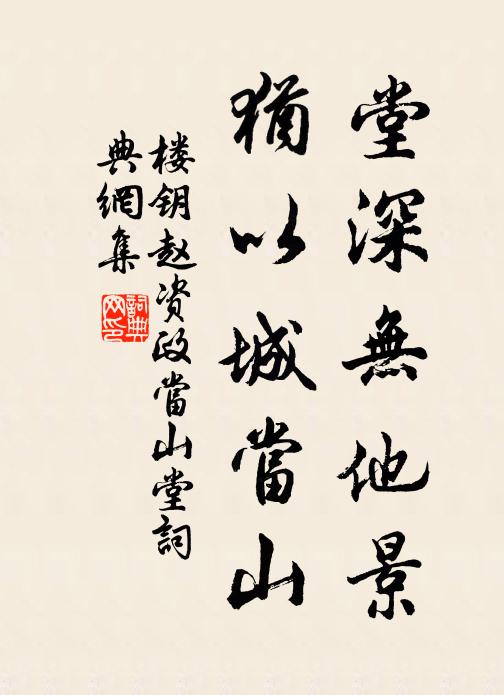 堂深無他景
猶以城當山
楼钥赵资政當山堂詞
典網集
詞典
网印